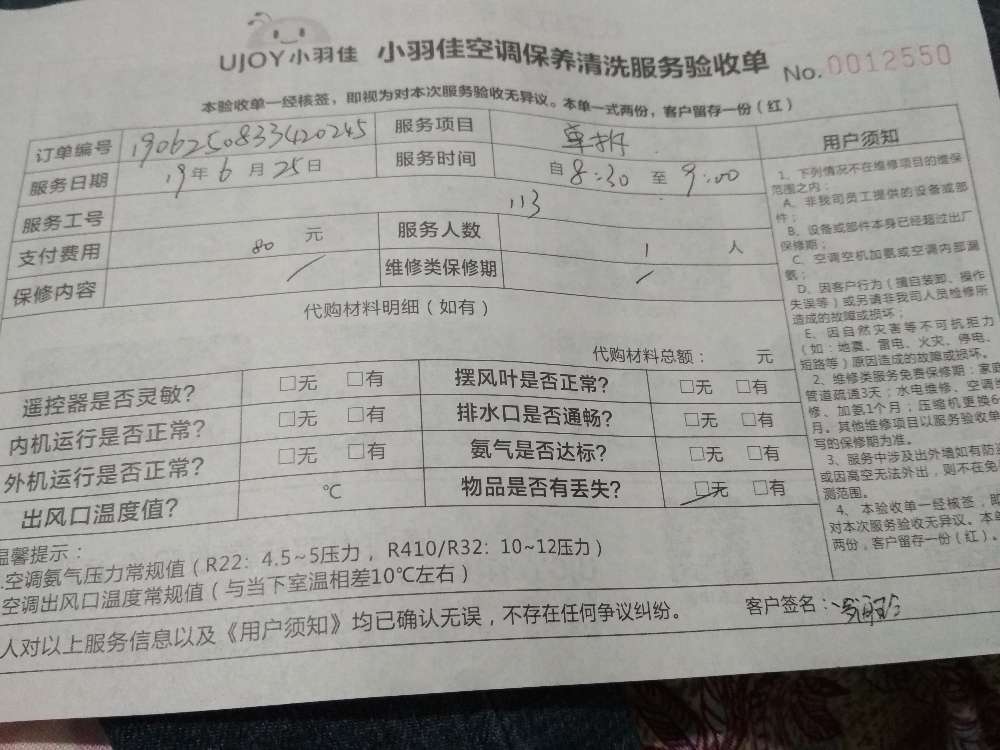 UJOY小羽佳 小羽佳空调保养清洗服务验收单 No.0012550
本验收单一经核签，即视为对本次服务验收无异议。本单一式两份，客户留存一份（红）
订单编号 190625083342024S 服务项目 单拆
服务日期 19年6月25日 服务时间 自8:30至9:00
服务工号 113
支付费用 80 元 服务人数 1 人
保修内容 / 维修类保修期 /
代购材料明细（如有）
代购材料总额： 元
遥控器是否灵敏？ □无 □有 摆风叶是否正常？ □无 □有
内机运行是否正常？ □无 □有 排水口是否通畅？ □无 □有
外机运行是否正常？ □无 □有 氨气是否达标？ □无 □有
出风口温度值？ ℃ 物品是否有丢失？ □无 □有
用户须知
1、下列情况不在维修项目的维保
范围之内：
A、非我司员工提供的设备或部
件；
B、设备或部件本身已经超过出厂
保修期；
C、空调空机加氨或空调内部漏
氨；
D、因客户行为（擅自装卸、操作
失误等）或另请非我司人员检修所
造成的故障或损坏；
E、因自然灾害等不可抗拒力
（如：地震、雷电、火灾、停电、
短路等）原因造成的故障或损坏。
2、维修类服务免费保修期：家庭
管道疏通3天；水电维修、空调维
修、加氨1个月；压缩机更换6
月。其他维修项目以服务验收单
写的保修期为准。
3、服务中涉及出外墙如有防
或因高空无法外出，则不在免
测范围。
4、本验收单一经核签，即
对本次服务验收无异议。本单
两份，客户留存一份（红）。
温馨提示：
.空调氨气压力常规值（R22：4.5~5压力，R410/R32：10~12压力）
空调出风口温度常规值（与当下室温相差10℃左右）
人对以上服务信息以及《用户须知》均已确认无误，不存在任何争议纠纷。 客户签名：